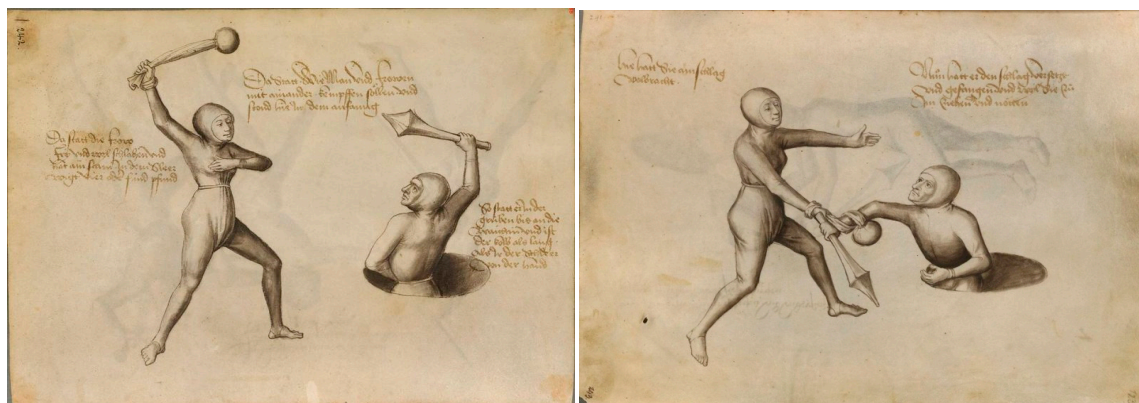 Da statt wie Man vnd frowen
mit ainander kempffen söllen vnd
stand hie in dem anfang
Da statt die frow
fry vnd wyl schlahen vnd
hat ain stain In dem Sleer
wigt vier oder fünf pfund
So statt er in der
gruben bis an die
waichin vnd ist
der kolb als lang
als Ir der Schleer
von der hand
hie hatt die ain schlag
volbracht.
Nun hatt er den schlag versetzt
vnd gefangen vnd wyl die zu
Im ziehen vnd nötten